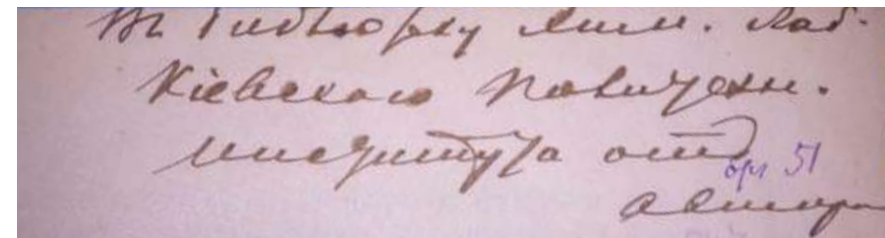 Въ Библіотеку хим. лаб.
Кіевскаго политехн.
института отъ
орг 51
автора